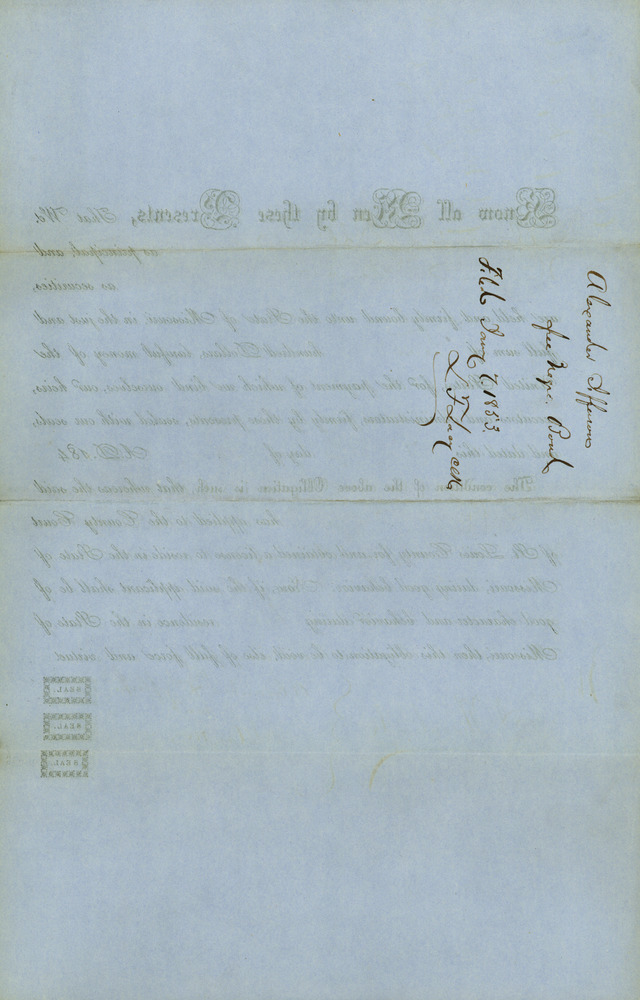 Alexander
free Negro Bond
Filed Jany 7, 1853.
Clk
Know all Men by these Presents, That We,
as principal, and
as securities,
held and firmly bound unto the State of Missouri in the just and
full sum of hundred Dollars, lawful money of the
United States, for the payment of which we bind ourselves, our heirs,
firmly by these presents, sealed with our seals,
and dated this day of A.D. 184
The condition of the above Obligation is such, that whereas the said
has applied to the County Court
of St. Louis County for and obtained license to reside in the State of
Missouri, during good behavior. Now, if the said applicant shall be of
good character and behavior during residence in the State of
Missouri, then this obligation to be void, else of full force and virtue.
SEAL
SEAL
SEAL